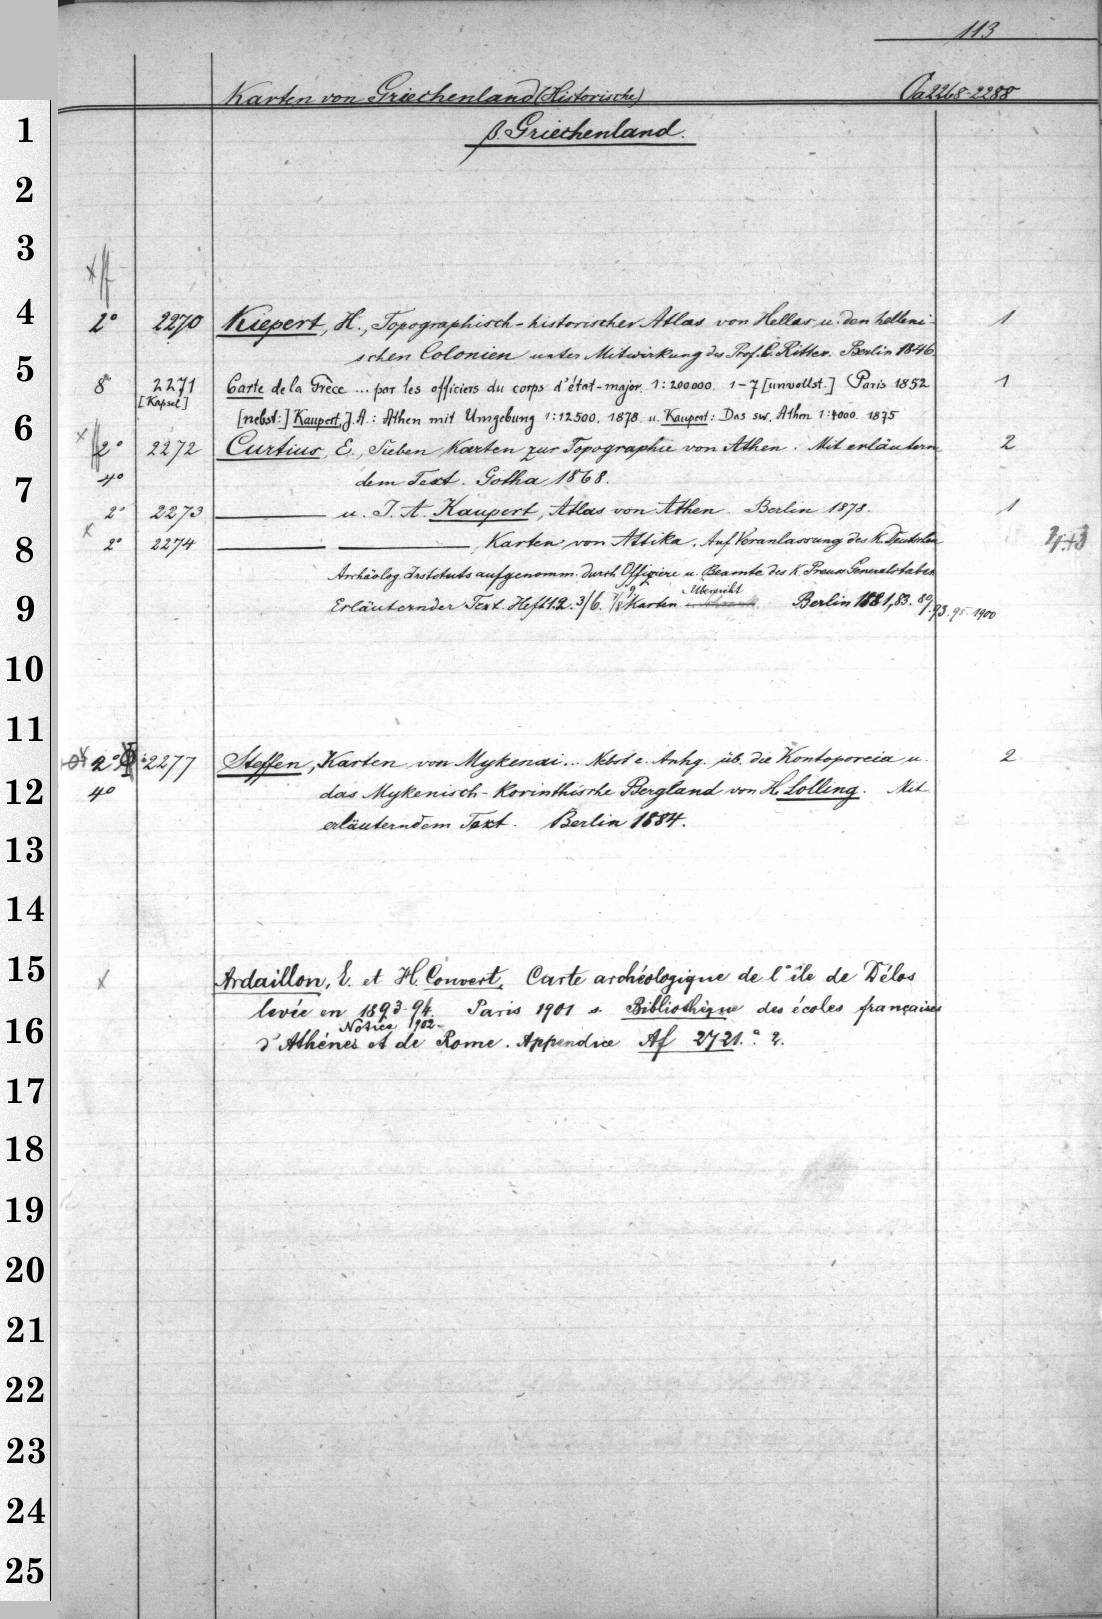 113
Karten von Griechenland (Historische) Oa 2268-2288
β. Griechenland.
2° 2270 Kiepert, H., Topographisch-historischer Atlas von Hellas u. den helleni- 1
schen Colonien unter Mitwirkung des Prof. C. Ritter. Berlin 1846.
8° 2271 Carte de la Grèce ... par les officiers du corps d'état-major. 1:200000. 1-7 [unvollst.] Paris 1852 1
[Kapsel]
[nebst:] Kaupert, J. A.: Athen mit Umgebung 1:12500. 1878. u. Kaupert: Das sw. Athen 1:4000. 1875
2° 2272 Curtius, E., Sieben Karten zur Topographie von Athen. Mit erläutern 2
4° dem Text. Gotha 1868.
2° 2273 ——— u. J. A. Kaupert, Atlas von Athen. Berlin 1878. 1
2° 2274 ——— ———, Karten von Attika. Auf Veranlassung des K. Deutschen
Archäolog. Instituts aufgenomm. durch Offiziere u. Beamte des K. Preuss Generalstabes
Übersicht
Erläuternder Text. Heft 1.2. 3/6. 7/8 9 Karten Berlin 1881, 83. 89. 93. 95-1900
2° 2277 Steffen, Karten von Mykenai... Nebst e. Anhg. üb. die Kontoporeia u. 2
4° das Mykenisch-Korinthische Bergland von H. Lolling. Mit
erläuterndem Text. Berlin 1884.
Ardaillon, E. et H. Convert, Carte archéologique de l'île de Délos
levée en 1893-94. Paris 1901 s. Bibliothèque des écoles françaises
Notice 1902-
d'Athénes et de Rome. Appendice Af 2721.ª 2.
1
2
3
4
5
6
7
8
9
10
11
12
13
14
15
16
17
18
19
20
21
22
23
24
25